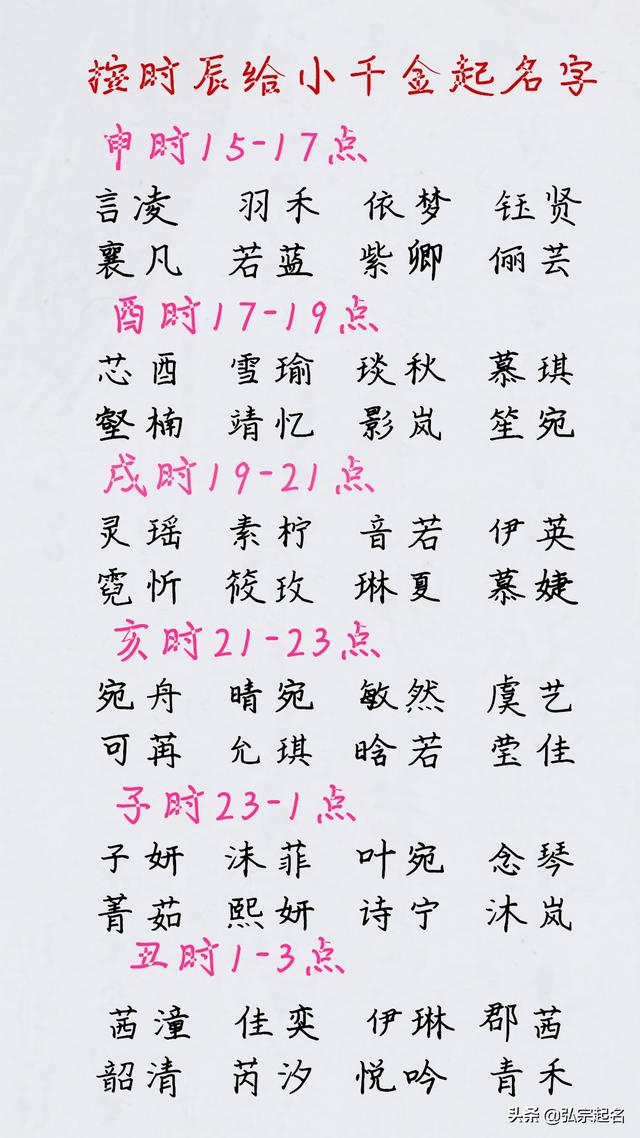 按时辰给小千金起名字
申时15-17点
言凌 羽禾 依梦 钰贤
襄凡 若蓝 紫卿 俪芸
酉时17-19点
芯酉 雪瑜 琰秋 慕琪
壑楠 靖忆 影岚 笙宛
戌时19-21点
灵瑶 素柠 音若 伊英
霓忻 筱玫 琳夏 慕婕
亥时21-23点
宛舟 晴宛 敏然 虞艺
可苒 允琪 晗若 莹佳
子时23-1点
子妍 沫菲 叶宛 念琴
菁茹 熙妍 诗宁 沐岚
丑时1-3点
茜潼 佳奕 伊琳 郡茜
韶清 芮汐 悦吟 青禾
头条 @弘宗起名